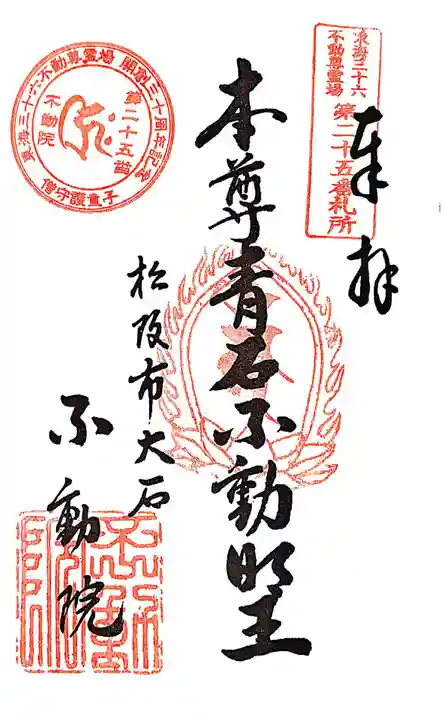 奉拝
東海三十六
不動尊霊場
第二十五番札所
本尊青石不動明王
松阪市大石
不動院
東海三十六不動尊霊場 開創三十周年記念
第二十五番
不動院
僧守護童子